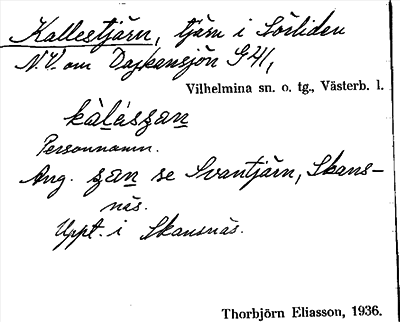 Kallestjärn, tjärn i Sörliden
N.V. om Dajkansjön G 41,
Vilhelmina sn. o. tg., Västerb. l.
Personnamn.
Ang. ʒan se Svantjärn, Skans-
näs.
Uppt. i Skansnäs.
Thorbjörn Eliasson, 1936.